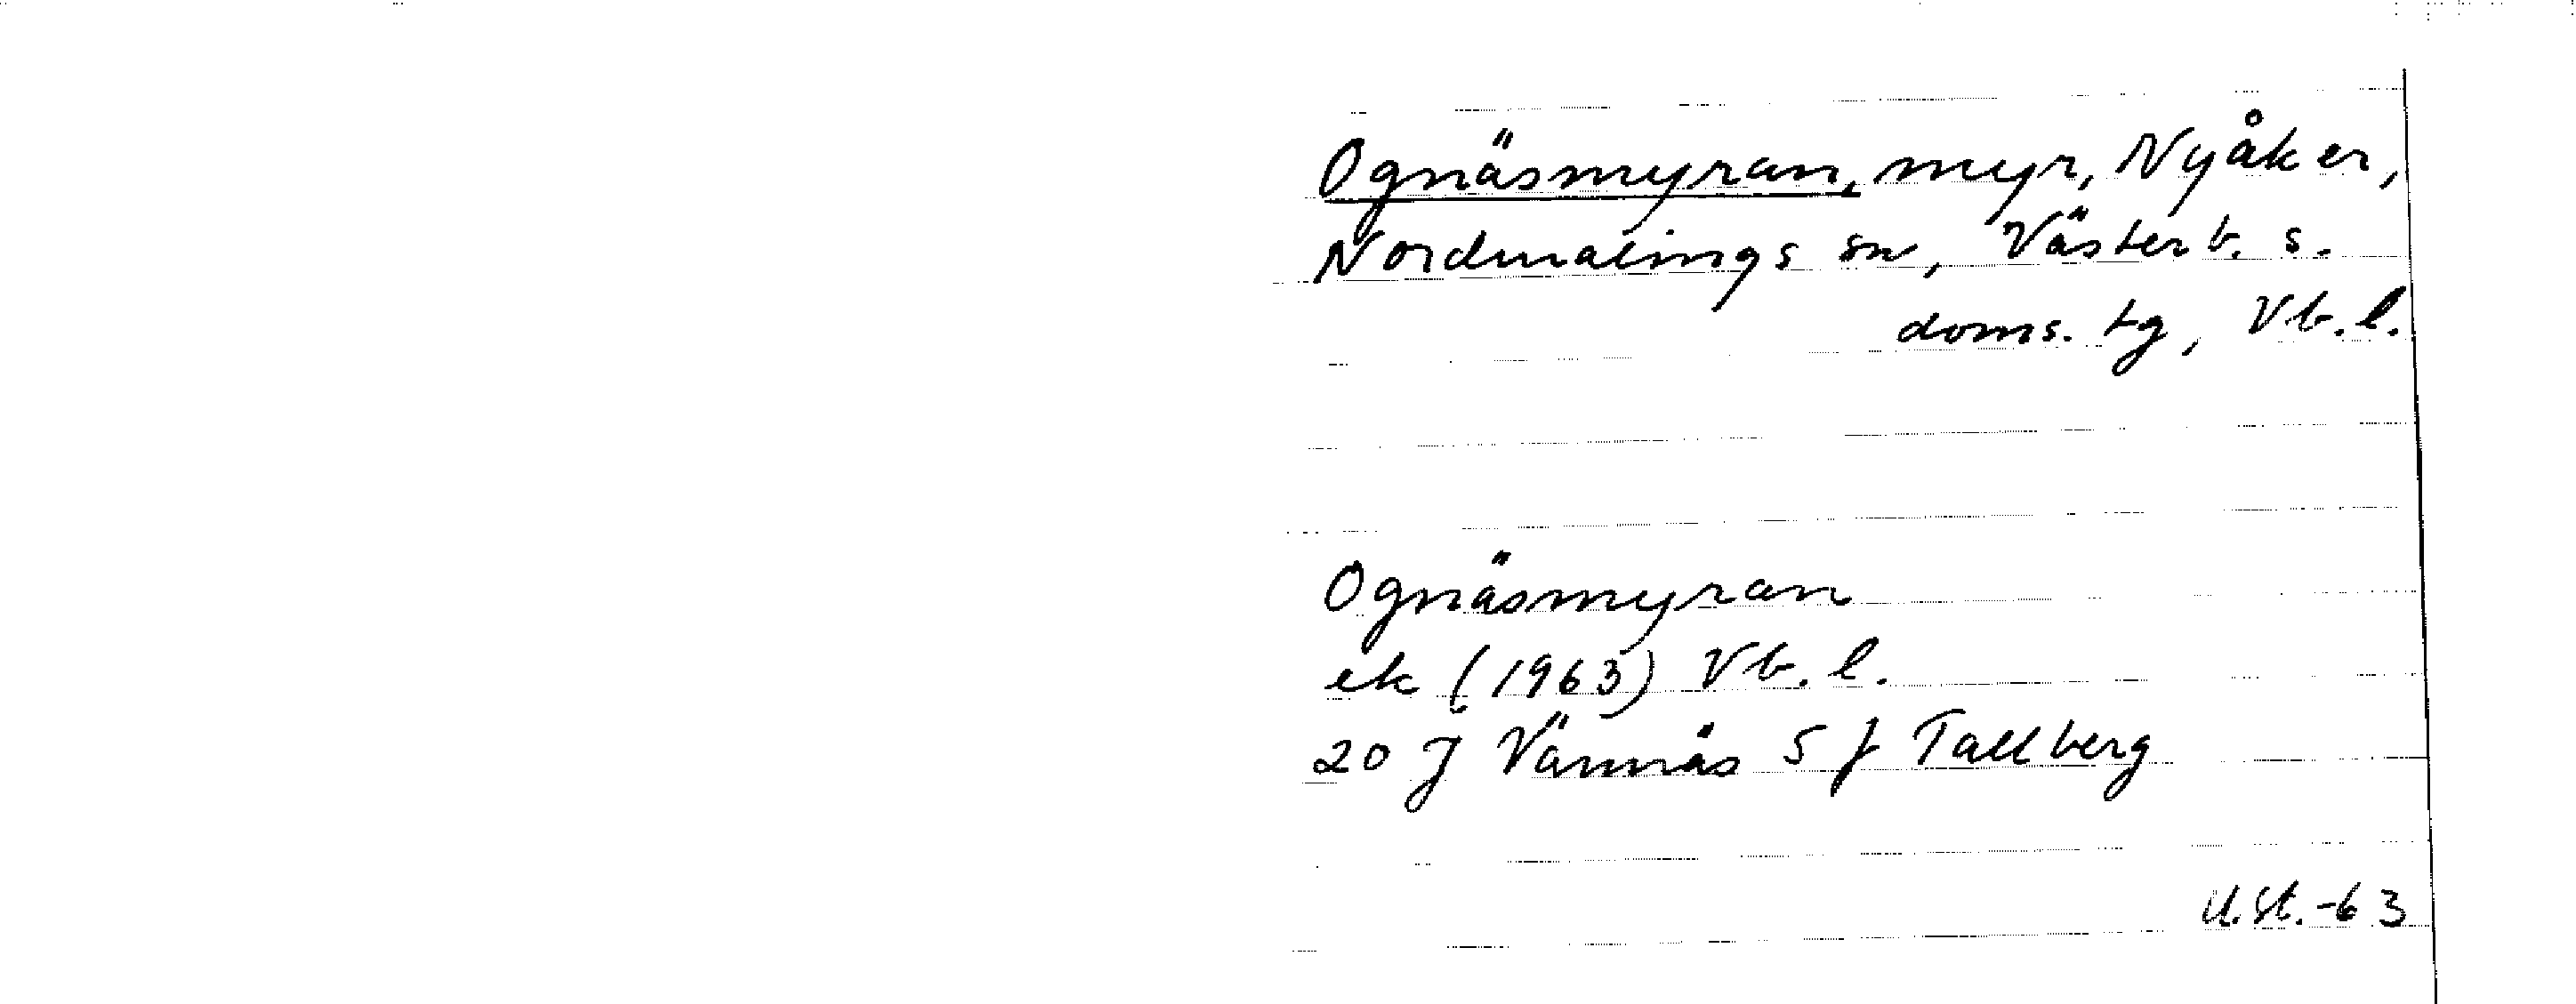 Ognäsmyran, myr, Nyåker,
Nordmalings sn, Västerb. s.
doms. tg, Vb. l.
Ognäsmyran
ek (1963) Vb. l.
20 J Vännäs 5 f Tallberg
U. St. -63